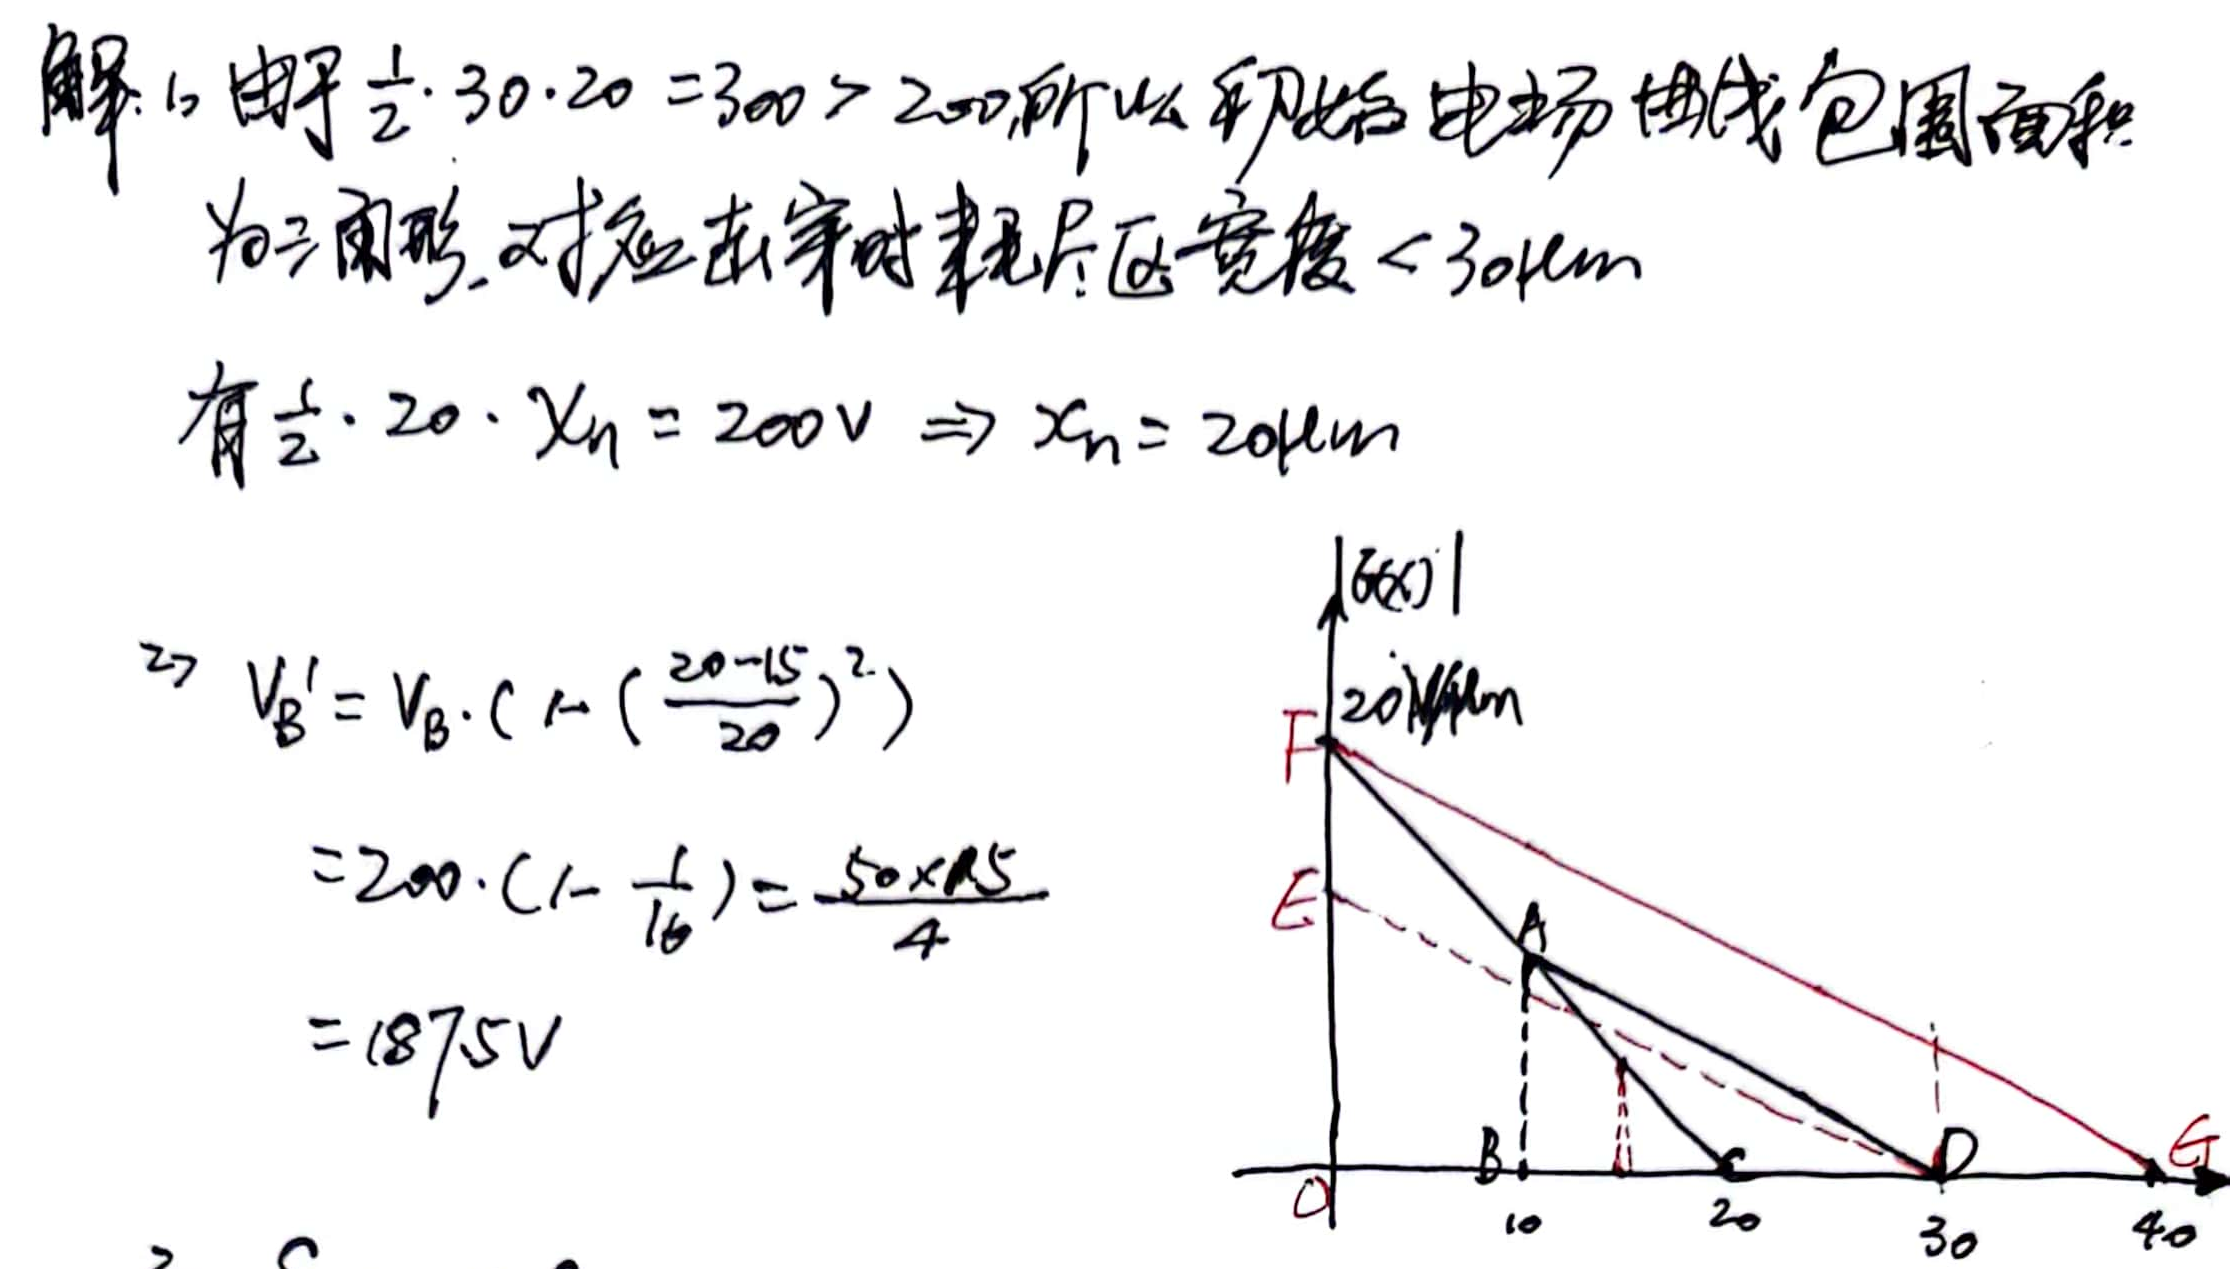 解:1) 由于 1/2·30·20=300>200,所以初始电场曲线包围面积
为三角形.对应击穿时耗尽区宽度<30μm
有 1/2·20·Xn=200V ⇒ xn=20μm
2) VB'=VB·(1-(20-15/20)²)
=200·(1-1/16)=50×15/4
=187.5V
|E(x)|
20V/μm
F
E
A
B
C
D
G
O
10
20
30
40